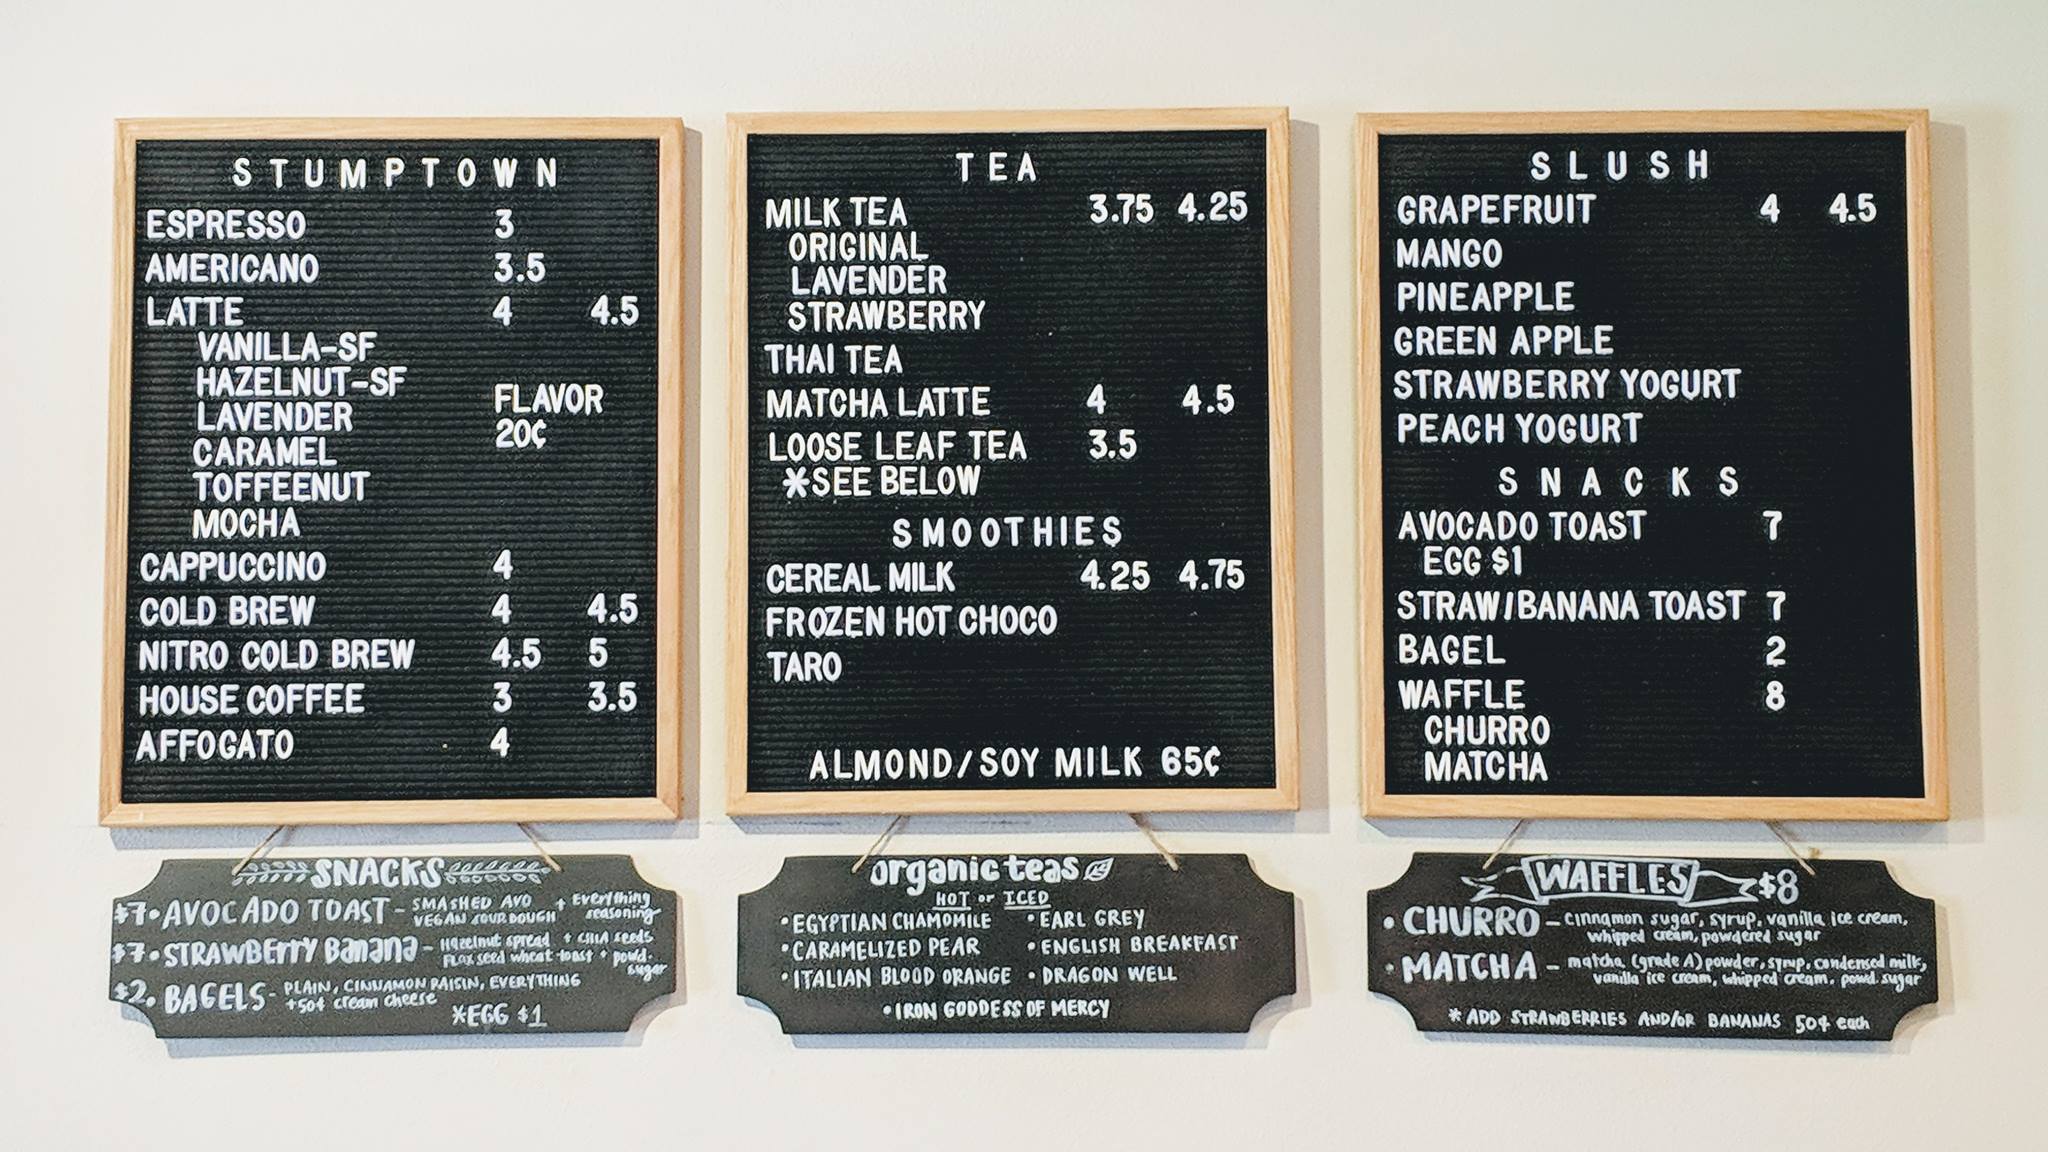 STUMPTOWN
ESPRESSO 3
AMERICANO 3.5
LATTE 4 4.5
VANILLA-SF
HAZELNUT-SF
LAVENDER
CARAMEL
TOFFEENUT
MOCHA
FLAVOR
20¢
CAPPUCCINO 4
COLD BREW 4 4.5
NITRO COLD BREW 4.5 5
HOUSE COFFEE 3 3.5
AFFOGATO 4
SNACKS
$7•AVOCADO TOAST - SMASHED AVO + Everything
VEGAN SOURDOUGH seasoning
$7•STRAWBERRY Banana - Hazelnut spread + CHIA seeds
Flax seed wheat toast + powd.
sugar
$2•BAGELS - PLAIN, CINNAMON RAISIN, EVERYTHING
+50¢ cream cheese
*EGG $1
TEA
MILK TEA 3.75 4.25
ORIGINAL
LAVENDER
STRAWBERRY
THAI TEA
MATCHA LATTE 4 4.5
LOOSE LEAF TEA 3.5
*SEE BELOW
SMOOTHIES
CEREAL MILK 4.25 4.75
FROZEN HOT CHOCO
TARO
ALMOND/SOY MILK 65¢
organic teas
HOT or ICED
•EGYPTIAN CHAMOMILE •EARL GREY
•CARAMELIZED PEAR •ENGLISH BREAKFAST
•ITALIAN BLOOD ORANGE •DRAGON WELL
•IRON GODDESS OF MERCY
SLUSH
GRAPEFRUIT 4 4.5
MANGO
PINEAPPLE
GREEN APPLE
STRAWBERRY YOGURT
PEACH YOGURT
SNACKS
AVOCADO TOAST 7
EGG $1
STRAW/BANANA TOAST 7
BAGEL 2
WAFFLE 8
CHURRO
MATCHA
WAFFLES $8
•CHURRO - cinnamon sugar, syrup, vanilla ice cream,
whipped cream, powdered sugar
•MATCHA - matcha (grade A) powder, syrup, condensed milk,
vanilla ice cream, whipped cream, powd. sugar
*ADD STRAWBERRIES AND/OR BANANAS 50¢ each